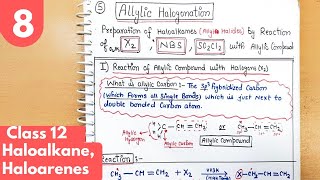 8
⑤ Allylic Halogenation
Preparation of Haloalkanes (Allylic Halides) by Reaction
of an X₂, NBS, SO₂Cl₂ with Allylic Compound
I) Reaction of Allylic Compound with Halogens (X₂)
What is allylic Carbon:- The Sp³ Hybridized Carbon
(which Forms all Single Bonds) which is just next to
double bonded Carbon atom.
C—CH=CH₂ or CH₃—CH=CH₂
Allylic Hydrogen Allylic Carbon Allylic Compound
Reaction:-
CH₃—CH=CH₂ + X₂ CH₂—CH=CH₂
Class 12
Haloalkane,
Haloarenes